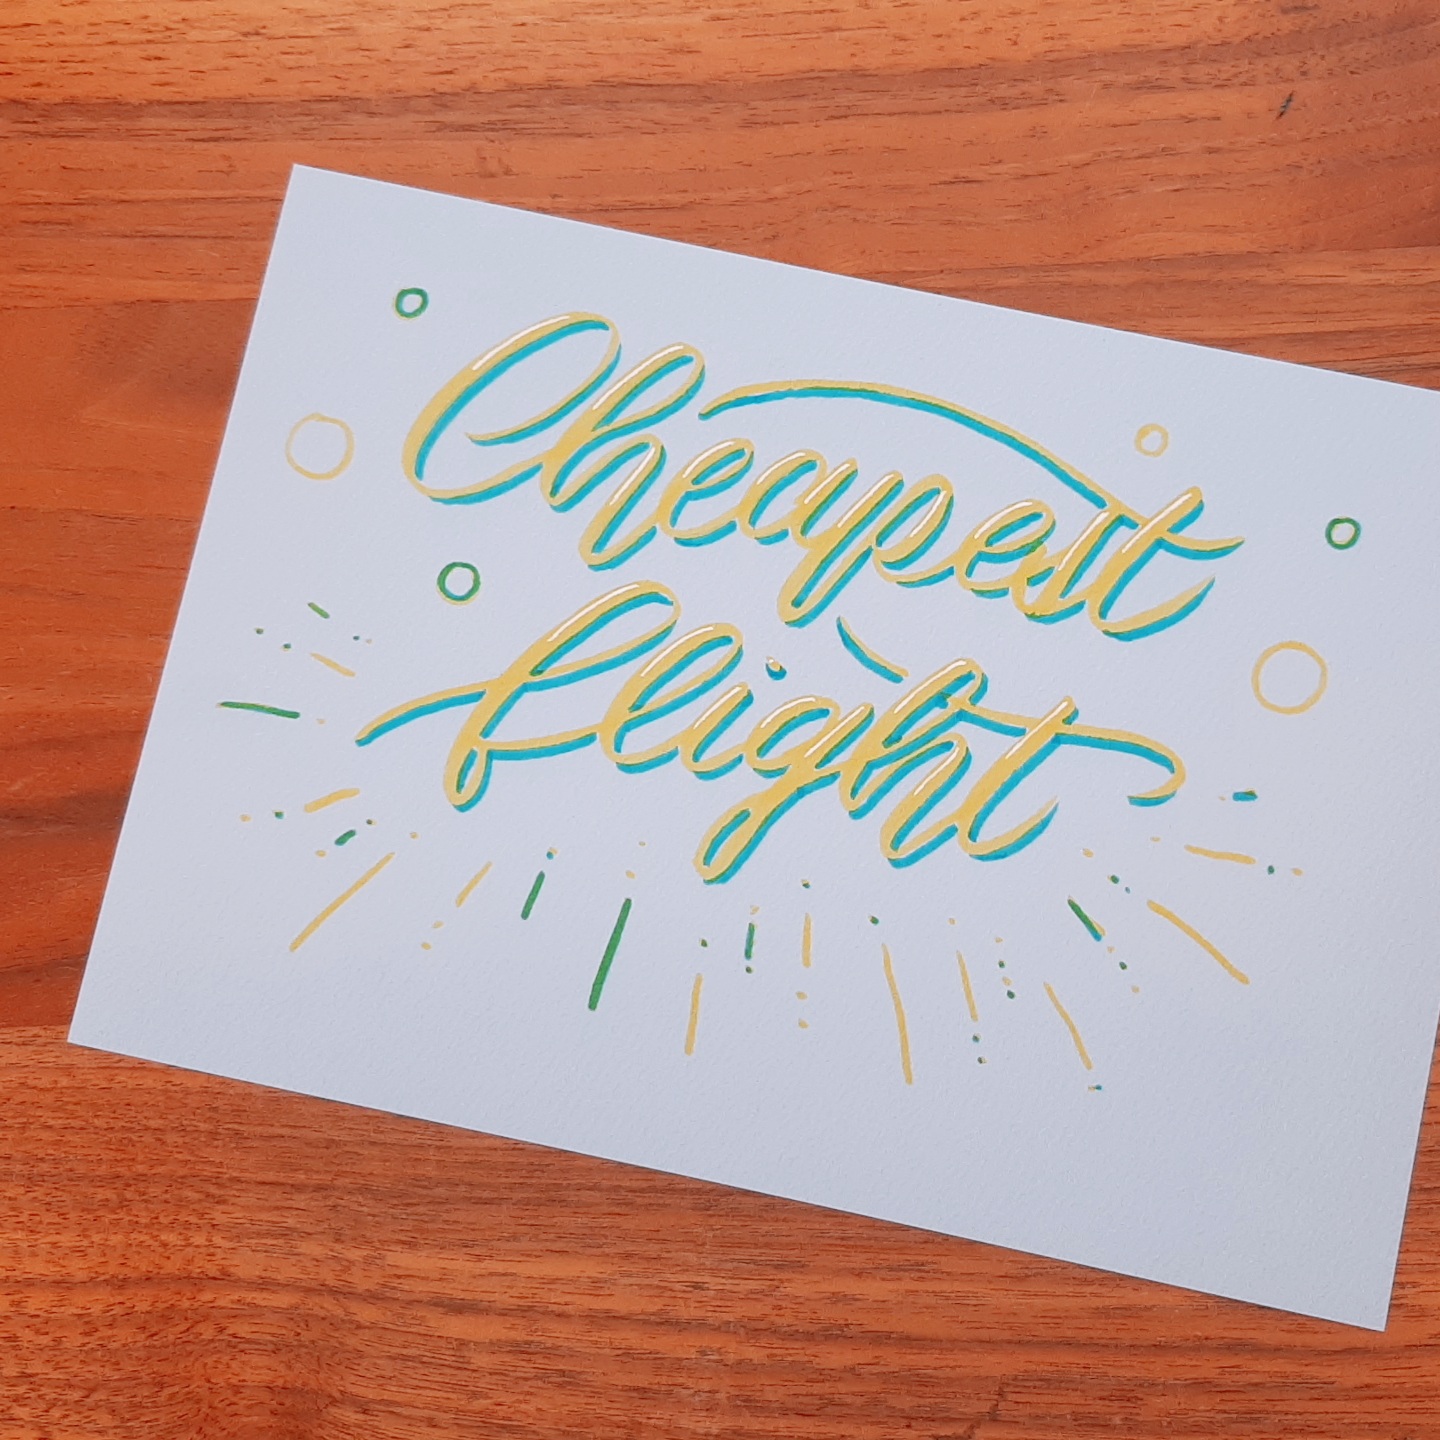 Cheapest
flight